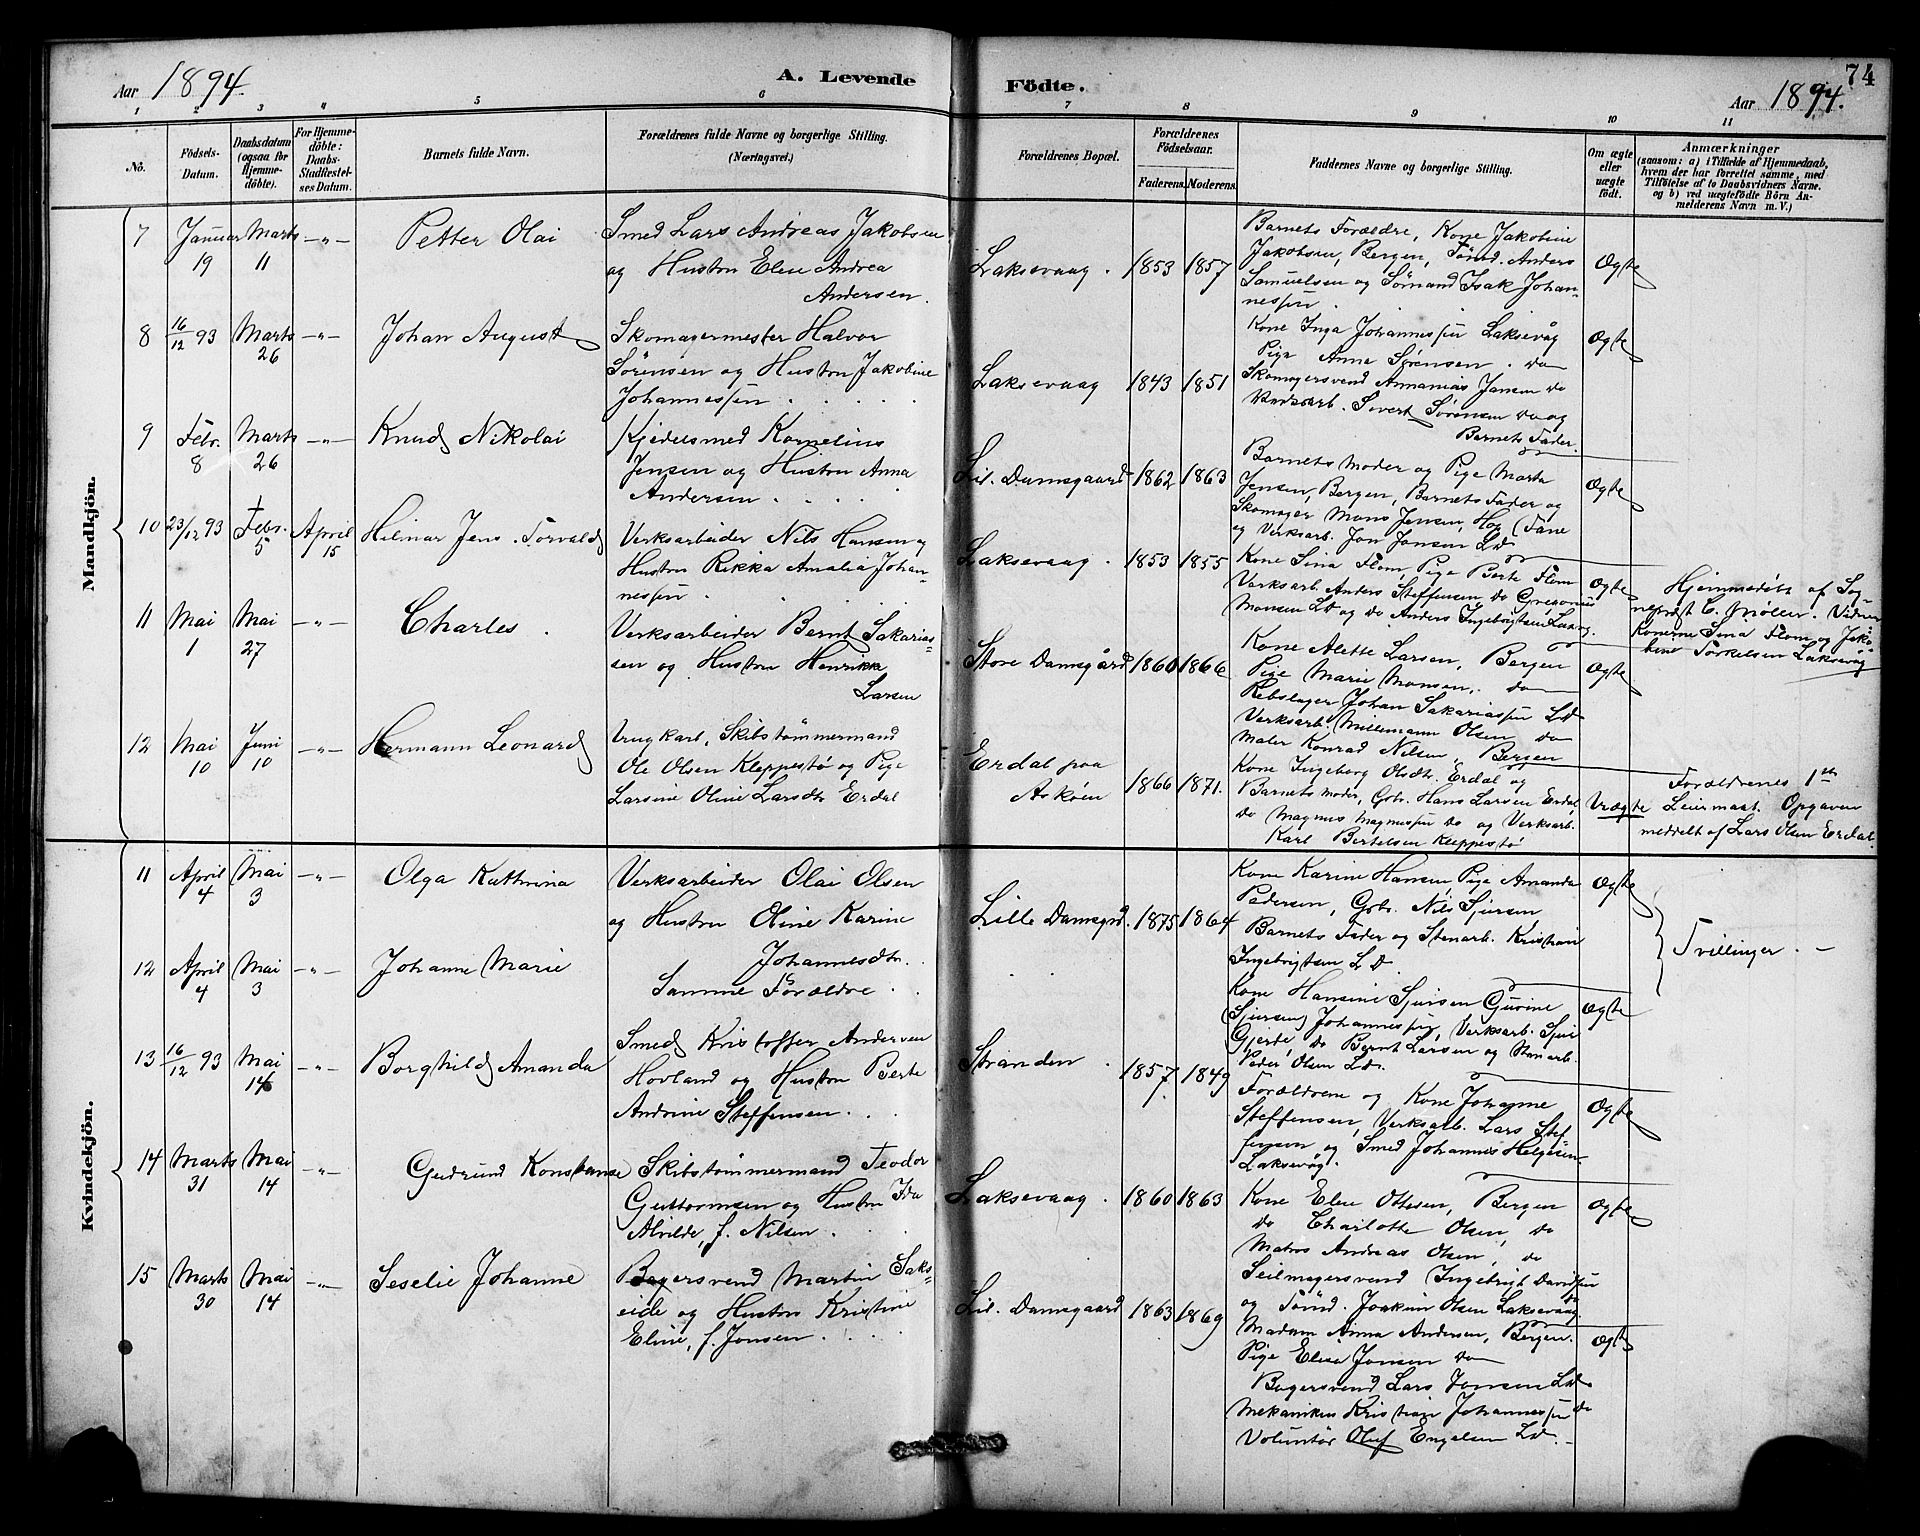 74
Aar 1894.
A. Levende
Födte.
Aar 1894.
1 2 3 4 5 6 7 8 9 10 11
No.
Födsels-Datum.
Daabsdatum (ogsaa for Hjemme-döbte).
For Hjemme-döbte: Daabs-Stadfæstel-ses Datum.
Barnets fulde Navn.
Forældrenes fulde Navne og borgerlige Stilling.
(Næringsvei.)
Forældrenes Bopæl.
Forældrenes Födselsaar.
Faderens. Moderens.
Faddernes Navne og borgerlige Stilling.
Om ægte eller uægte födt.
Anmærkninger
(saasom: a) i Tilfælde af Hjemmedaab,
hvem der har forrettet samme, med
Tilföielse af to Daabsvidners Navne.
og b) ved uægtefödte Börn An-
melderens Navn m. V.)
Mandkjön.
7 Januar 19 Marts 11 -"- Petter Olai
Smed Lars Andreas Jakobsen
og Hustru Eline Andrea
Andersen.
Laksevaag. 1853 1857
Barnets Forældre, Kone Jakobine
Jakobsen, Bergen, Tömd. Anders
Samuelsen og Sömand Isak Johan-
nessen.
Ægte
8 16/12 93 Marts 26 -"- Johan August
Skomagermester Halvor
Sörensen og Hustru Jakobine
Johannessen
Laksevaag 1843 1851
Kone Inga Johannessen Laksevåg
Pige Anna Sörensen. do
Skomagersvend Annanias Jansen do
Verksarb. Sivert Sörensen do og
Barnets Fader.
Ægte
9 Febr. 8 Marts 26 -"- Knud Nikolai
Kjedelsmed Kornelius
Jensen og Hustru Anna
Andersen
Lil. Damsgaard 1862 1863
Barnets Moder og Pige Marta
Jensen, Bergen, Barnets Fader og
Skomager Mons Jensen, Hop (Fane
og Verksarb. Jon Jonsen Ld
Ægte
10 23/12 93 † Febr. 5 April 15 Hilmar Jens Torvald
Verksarbeider Nils Hansen og
Hustru Rikka Amalia Johan-
nessen
Laksevaag. 1853 1855
Kone Sina Flom, Pige Berte Flom
Verksarb. Anders Steffensen do Gregorius
Monsen Ld og do Anders Ingebrigtsen Laksvg.
Ægte
Hjemmedöbt af Sog-
nepræst C. Möller. Vidner
Konerne Sina Flom og Jako-
bine Torkelsen Laksevåg
11 Mai 1 Mai 27 -"- Charles.
Verksarbeider Bernt Sakarias-
sen og Hustru Henrikke
Larsen
Store Damsgård 1860 1866
Kone Alette Larsen, Bergen
Pige Marie Monsen, do
Rebslager Johan Sakariassen Ld
Verksarb. Millemann Olsen do
Maler Konrad Nilsen, Bergen
Ægte
12 Mai 10 Juni 10 -"- Hermann Leonard
Ungkarl, Skibstömmermand
Ole Olsen Kleppestö og Pige
Larsine Oline Larsdtr. Erdal
Erdal paa
Asköen 1866 1871.
Kone Ingeborg Olsdtr. Erdal og
Barnets Moder, Gbr. Hans Larsen Erdal,
do Magnus Magnessen do og Verksarb.
Karl Bertelsen Kleppestö
Uægte
Forældrenes 1ste
Leiermaal. Opgaven
meddelt af Lars Olsen Erdal.
Kvindekjön.
11 April 4 Mai 3 -"- Olga Kathrina
Verksarbeider Olai Olsen
og Hustru Oline Karine
Johannesdtr.
Lille Damsgrd. 1875 1864
Kone Karine Hansen, Pige Amanda
Pedersen, Gbr. Nils Sjursen
Barnets Fader og Stenarb. Kristian
Ingebrigtsen Ld.
Ægte
Tvillinger. -
12 April 4 Mai 3 -"- Johanne Marie
Samme Forældre
Kone Hansine Sjursen Gurine
(Sjursen) Johannessen, Verksarb. Sjur
Gjerde, do Bernt Larsen og Stenarb.
Peder Olsen Ld.
Ægte
13 16/12 93 Mai 14 -"- Borghild Amanda
Smed Kristoffer Andersen
Hovland og Hustru Berte
Andrine Steffensen.
Stranden. 1857. 1849
Forældrene og Kone Johanne
Steffensen, Verksarb. Lars Stef-
fensen og Smed Johannes Helgesen
Laksevåg.
Ægte
14 Marts 31 Mai 14 -"- Gudrund Konstanse
Skibstömmermand Teodor
Guttormsen og Hustru Ida
Alvilde, f. Nilsen.
Laksevaag. 1860 1863
Kone Eline Ottesen, Bergen
do Charlotte Olsen, do
Matros Andreas Olsen, do
Seilmagersvend Ingebrigt Davidsen do
og Tömd. Joakim Olsen Laksevaag
Ægte
15 Marts 30 Mai 14 -"- Seselie Johanne
Bagersvend Martin Saks-
eide og Hustru Kristine
Eline, f. Jonsen.
Lil. Damsgaard 1863 1869
Madam Anna Andersen, Bergen.
Pige Elisa Jonsen do
Bagersvend Lars Jonsen Ld.
Mekanikus Kristian Johannessen do
Voluntör Oluf Engelsen Ld. -
Ægte